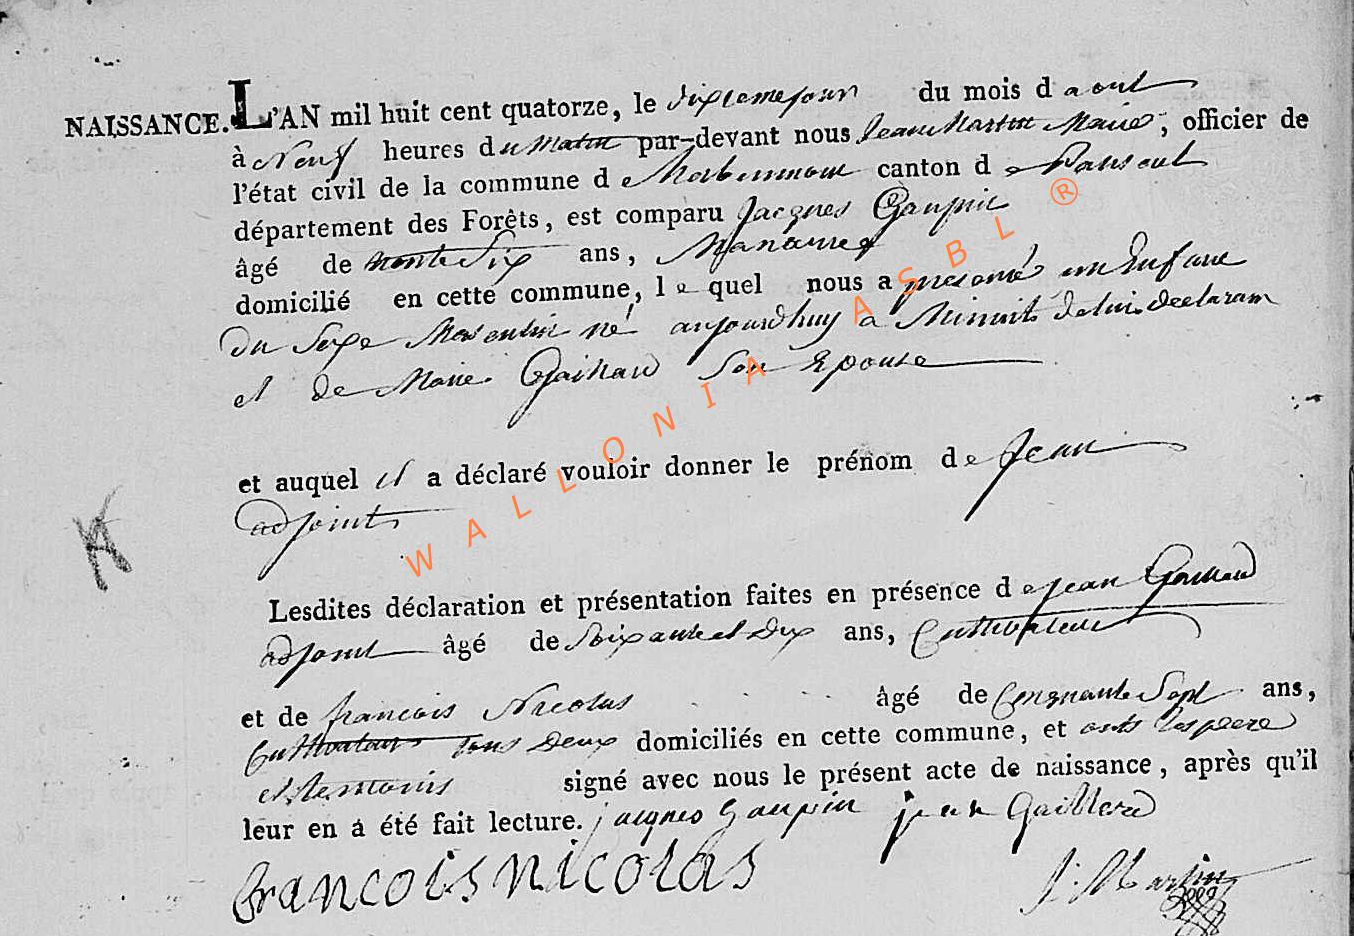 NAISSANCE. L'AN mil huit cent quatorze, le dixiemejour du mois d aout
à Neuf heures du Matin par-devant nous Jean Martin Maire, officier de
l'état civil de la commune de canton de
département des Forêts, est comparu Jacques Goupin
âgé de trente Six ans, Manœuvre
domicilié en cette commune, le quel nous a presenté un Enfant
du Sexe Masculin né aujourdhuy a Minuit de lui declarant
et de Marie Gaillard Son Epouse
et auquel il a déclaré vouloir donner le prénom de Jean
adjoint
Lesdites déclaration et présentation faites en présence de jean Gaillard
adjoint âgé de Soixante et Dix ans, Cultivateur
et de francois Nicolas âgé de Cinquante Sept ans,
Cultivateur tous Deux domiciliés en cette commune, et ont les pere
et temoins signé avec nous le présent acte de naissance, après qu'il
leur en a été fait lecture. jacques goupin jean Gaillard
francois nicolas J. Martin
WALLONIA ASBL ®